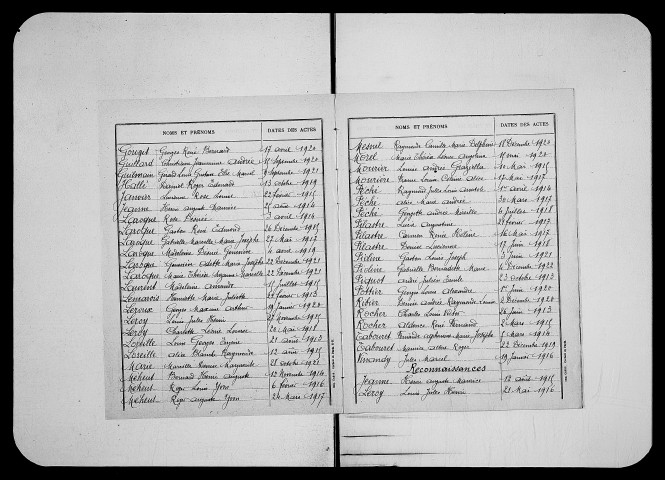 NOMS ET PRÉNOMS DATES DES ACTES
Gouget Georges René Bernard 17 avril 1920
Guillard Christiane Jeannine Andrée 15 Septembre 1920
Guilmain Gérard Louis Gustave Elie Marcel 9 Septembre 1921
Hallé Raymond Roger Edouard 13 octobre 1919
Janvier Lucienne Rose Louise 22 février 1915
Jeanne Henri August Maurice 25 août 1914
Laroque Rose Désirée 3 avril 1914
Laroque Gaston René Edmond 26 Décembre 1915
Laroque Gabrielle Marcelle Marie Josèphe 27 Mai 1917
Laroque Madeleine Denise Germaine 4 avril 1919
Laroque Germaine Odette Marie Josèphe 22 Décembre 1921
Laroque Marie Thérèse Suzanne Marcelle 22 Décembre 1921
Laurent Madeleine Armande 15 Juillet 1915
Lemarois Henriette Marie Juliette 22 février 1913
Leroux Georges Maxime Arthur 19 Janvier 1920
Leroy Louis Jules Henri 27 Novembre 1915
Leroy Charlotte Léone Louise 20 Mai 1918
Loisille Louis Georges Eugène 21 avril 1913
Loiselle Alice Blanche Raymonde 12 août 1915
Marie Marcelle Yvonne Marguerite 28 octobre 1921
Meheut Bernard Henri Auguste 12 Novembre 1914
Meheut Roger Louis Yves 6 février 1916
Meheut Roger Auguste Yvon 24 Mars 1917
NOMS ET PRÉNOMS DATES DES ACTES
Mesnel Raymonde Camille Marie Delphine 18 Décembre 1920
Morel Marie Thérèse Louise Angelina 15 mai 1920
Mourier Louise Andrée Graziella 10 Mai 1915
Mourier Yvonne Louise Céline Alice 17 Mai 1917
Péché Raymond Jules Louis 1er avril 1914
Péché Alice Marie Andrée 30 Mars 1917
Péché Georgette Andrée Marcelle 6 Juillet 1918
Pilastre Lucie Augustine 28 février 1917
Pilastre Carmen Renée Hélène 16 Mai 1917
Pilastre Denise Lucienne 17 Juin 1918
Pidine Gaston Louis Joseph 3 Juin 1921
Pidine Gabrielle Bernadette Marie 4 Décembre 1922
Piquot André Jules Emile 23 octobre 1913
Pottier Georges Louis Alexandre 1er Juin 1920
Ribier Denise Andrée Raymonde Louise 2 Décembre 1920
Rocher Charles Louis Victor 26 Juin 1913
Rocher Albert René Fernand 2 Mars 1915
Tabouret Fernande Alphonsine Marie Josèphe 1 Mars 1916
Tabouret Maurice Albert Roger 22 Décembre 1919
Vivandy Jules Marcel 19 Janvier 1916
Reconnaissances
Jeanne Henri Auguste Maurice 12 août 1915
Leroy Louis Jules Henri 21 Mai 1916